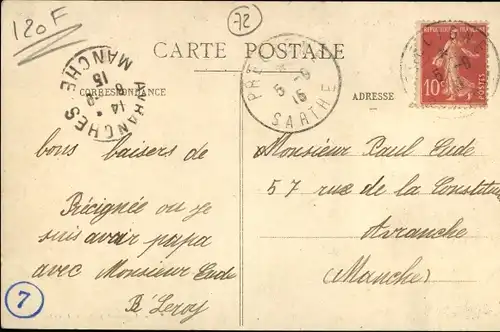 120F
72
CARTE POSTALE
RÉPUBLIQUE FRANÇAISE
10c
POSTES
AVRANCHES
14
8-8
15
MANCHE
5-8
15
SARTHE
CORRESPONDANCE
ADRESSE
bons baisers de
Précignée ou je
suis avair papa
avec Monsieur Eude
B Leroy
Monsieur Paul Eude
57 rue de la Constitut
Avranche
(Manche)
7